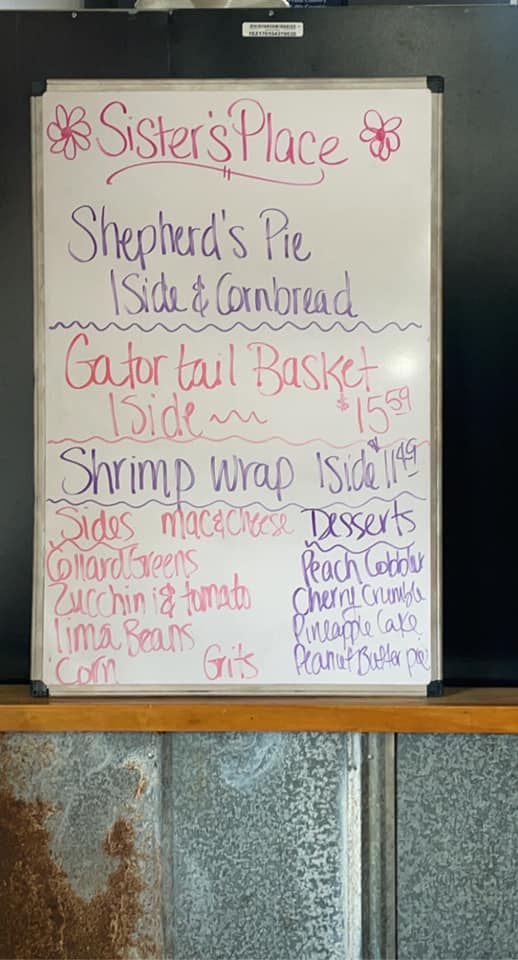 Sister's Place
Shepherd's Pie
1 Side & Cornbread
Gator tail Basket
1 Side $15.59
Shrimp wrap 1 Side $11.49
Sides Mac & Cheese
Collard Greens
Zucchini & tomato
lima Beans
Corn Grits
Desserts
Peach Cobbler
Cherry Crumble
Pineapple Cake
Peanut Butter pie